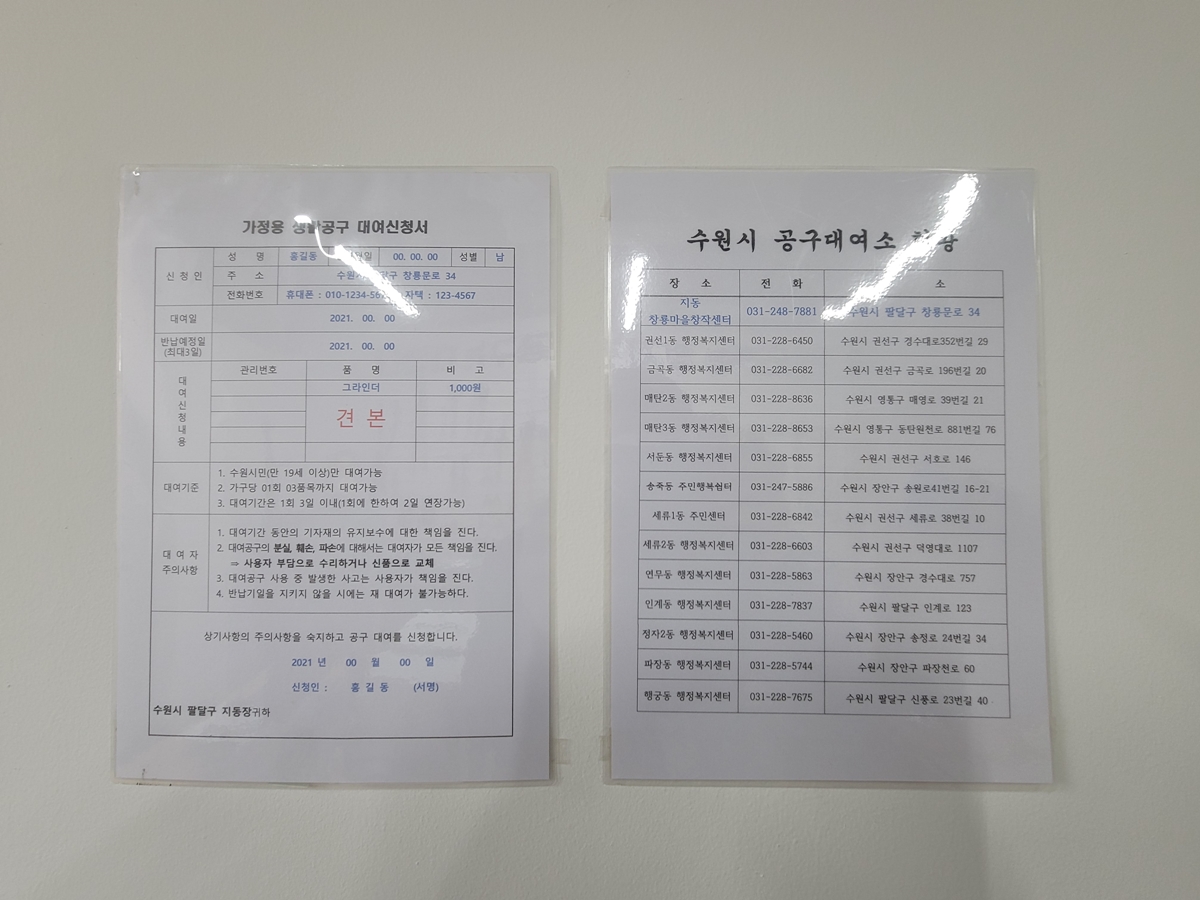 가정용 공구 대여신청서
신 청 인
성 명 홍길동 00. 00. 00 성별 남
주 소 창룡문로 34
전화번호 휴대폰 : 자택 : 123-4567
대여일 2021. 00. 00
반납예정일
(최대3일)
2021. 00. 00
대여신청내용
관리번호 품 명 비 고
그라인더 1,000원
견 본
대여기준
1. 수원시민(만 19세 이상)만 대여가능
2. 가구당 01회 03품목까지 대여가능
3. 대여기간은 1회 3일 이내(1회에 한하여 2일 연장가능)
대 여 자
주의사항
1. 대여기간 동안의 기자재의 유지보수에 대한 책임을 진다.
2. 대여공구의 분실, 훼손, 파손에 대해서는 대여자가 모든 책임을 진다.
⇒ 사용자 부담으로 수리하거나 신품으로 교체
3. 대여공구 사용 중 발생한 사고는 사용자가 책임을 진다.
4. 반납기일을 지키지 않을 시에는 재 대여가 불가능하다.
상기사항의 주의사항을 숙지하고 공구 대여를 신청합니다.
2021 년 00 월 00 일
신청인 : 홍 길 동 (서명)
수원시 팔달구 지동장귀하
수원시 공구대여소
장 소 전 화 소
지동
창룡마을창작센터
031-248-7881 수원시 팔달구 창룡문로 34
권선1동 행정복지센터 031-228-6450 수원시 권선구 경수대로352번길 29
금곡동 행정복지센터 031-228-6682 수원시 권선구 금곡로 196번길 20
매탄2동 행정복지센터 031-228-8636 수원시 영통구 매영로 39번길 21
매탄3동 행정복지센터 031-228-8653 수원시 영통구 동탄원천로 881번길 76
서둔동 행정복지센터 031-228-6855 수원시 권선구 서호로 146
송죽동 주민행복쉼터 031-247-5886 수원시 장안구 송원로41번길 16-21
세류1동 주민센터 031-228-6842 수원시 권선구 세류로 38번길 10
세류2동 행정복지센터 031-228-6603 수원시 권선구 덕영대로 1107
연무동 행정복지센터 031-228-5863 수원시 장안구 경수대로 757
인계동 행정복지센터 031-228-7837 수원시 팔달구 인계로 123
정자2동 행정복지센터 031-228-5460 수원시 장안구 송정로 24번길 34
파장동 행정복지센터 031-228-5744 수원시 장안구 파장천로 60
행궁동 행정복지센터 031-228-7675 수원시 팔달구 신풍로 23번길 40